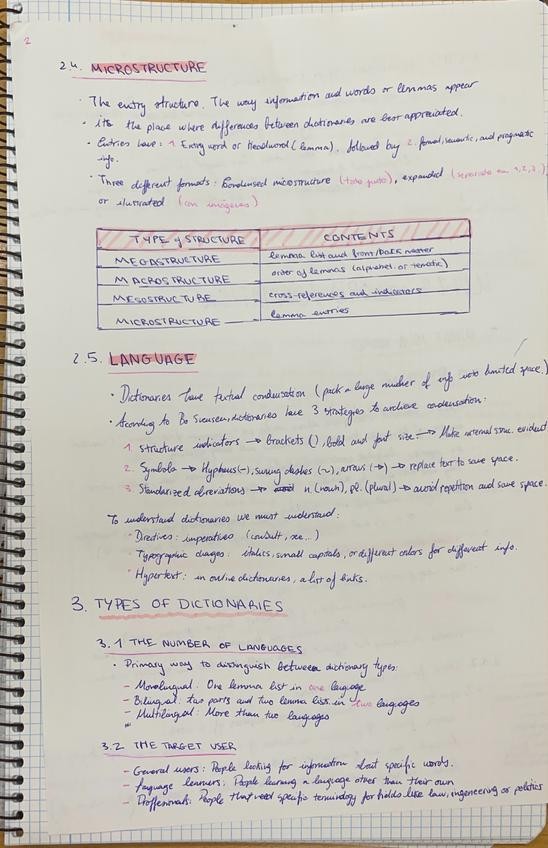 2
2.4. MICROSTRUCTURE
· The entry structure. The way information and words or lemmas appear
· its the place where differences between dictionaries are best appreciated.
· Entries have: 1. Entry word or headword (lemma). followed by 2. formal, semantic, and pragmatic
info.
· Three different formats: Condensed microstructure (todo junto), expanded (separate en 1,2,3.)
or ilustrated (con imágenes)
TYPE of STRUCTURE CONTENTS
MEGASTRUCTURE lemma list and front/back matter
MACROSTRUCTURE order of lemmas (alphabet. or tematic)
MESOSTRUCTURE cross-references and indicators
MICROSTRUCTURE lemma entries
2.5. LANGUAGE
· Dictionaries have textual condensation (pack a large number of info into limited space.)
· According to Bo Svensen, dictionaries have 3 strategies to archieve condensation:
1. Structure indicators → brackets (), bold and font size → Make internal struc. evident
2. Symbols → Hyphens(-), swung dashes (~), arrows (→) → replace text to save space.
3. Standarized abreviations → n. (noun), pl. (plural) → avoid repetition and save space.
To understand dictionaries we must understand:
· Directives: imperatives (consult, see...)
· Typographic changes: italics, small capitals, or different colors for different info.
· Hypertext: in online dictionaries, a list of links.
3. TYPES OF DICTIONARIES
3.1 THE NUMBER OF LANGUAGES
· Primary way to distinguish between dictionary types:
– Monolingual: One lemma list in one language
– Bilingual: two parts and two lemma lists in two languages
– Multilingual: More than two languages
3.2 THE TARGET USER
– General users: People looking for information about specific words.
– Language learners: People learning a language other than their own
– Proffesionals: People that need specific terminology for fields like law, ingeneering or politics